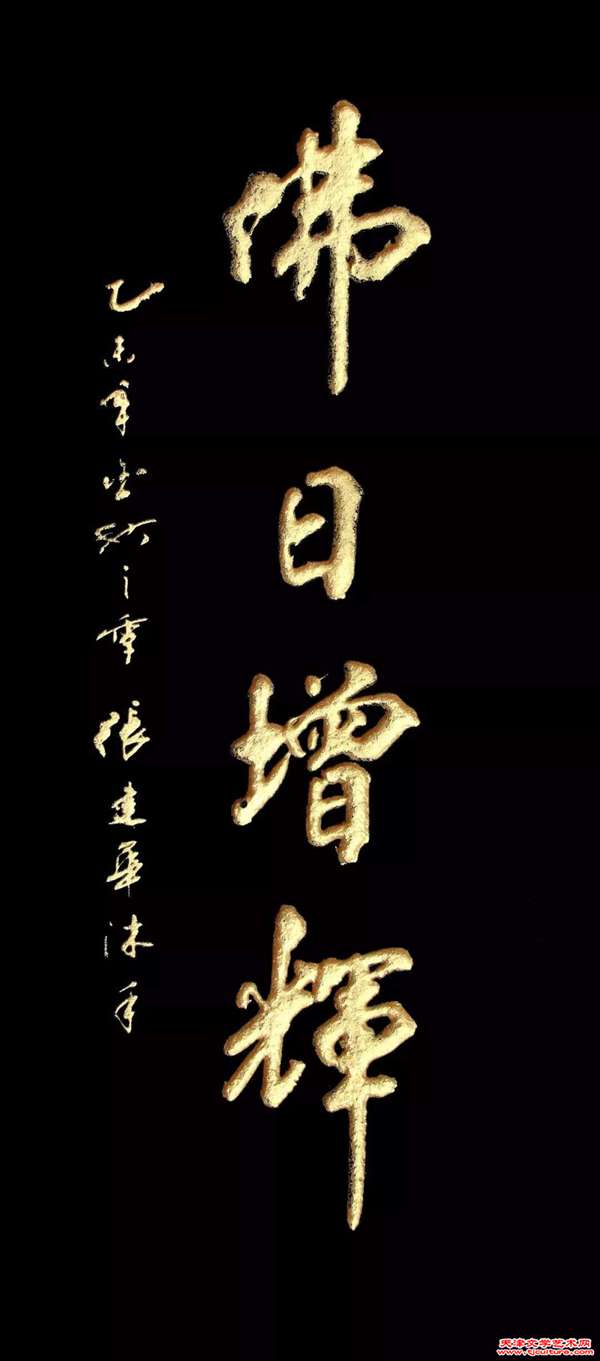 佛日增輝
乙未年金秋之季 張建華沐手
天津文学艺术网
www.tjculture.com